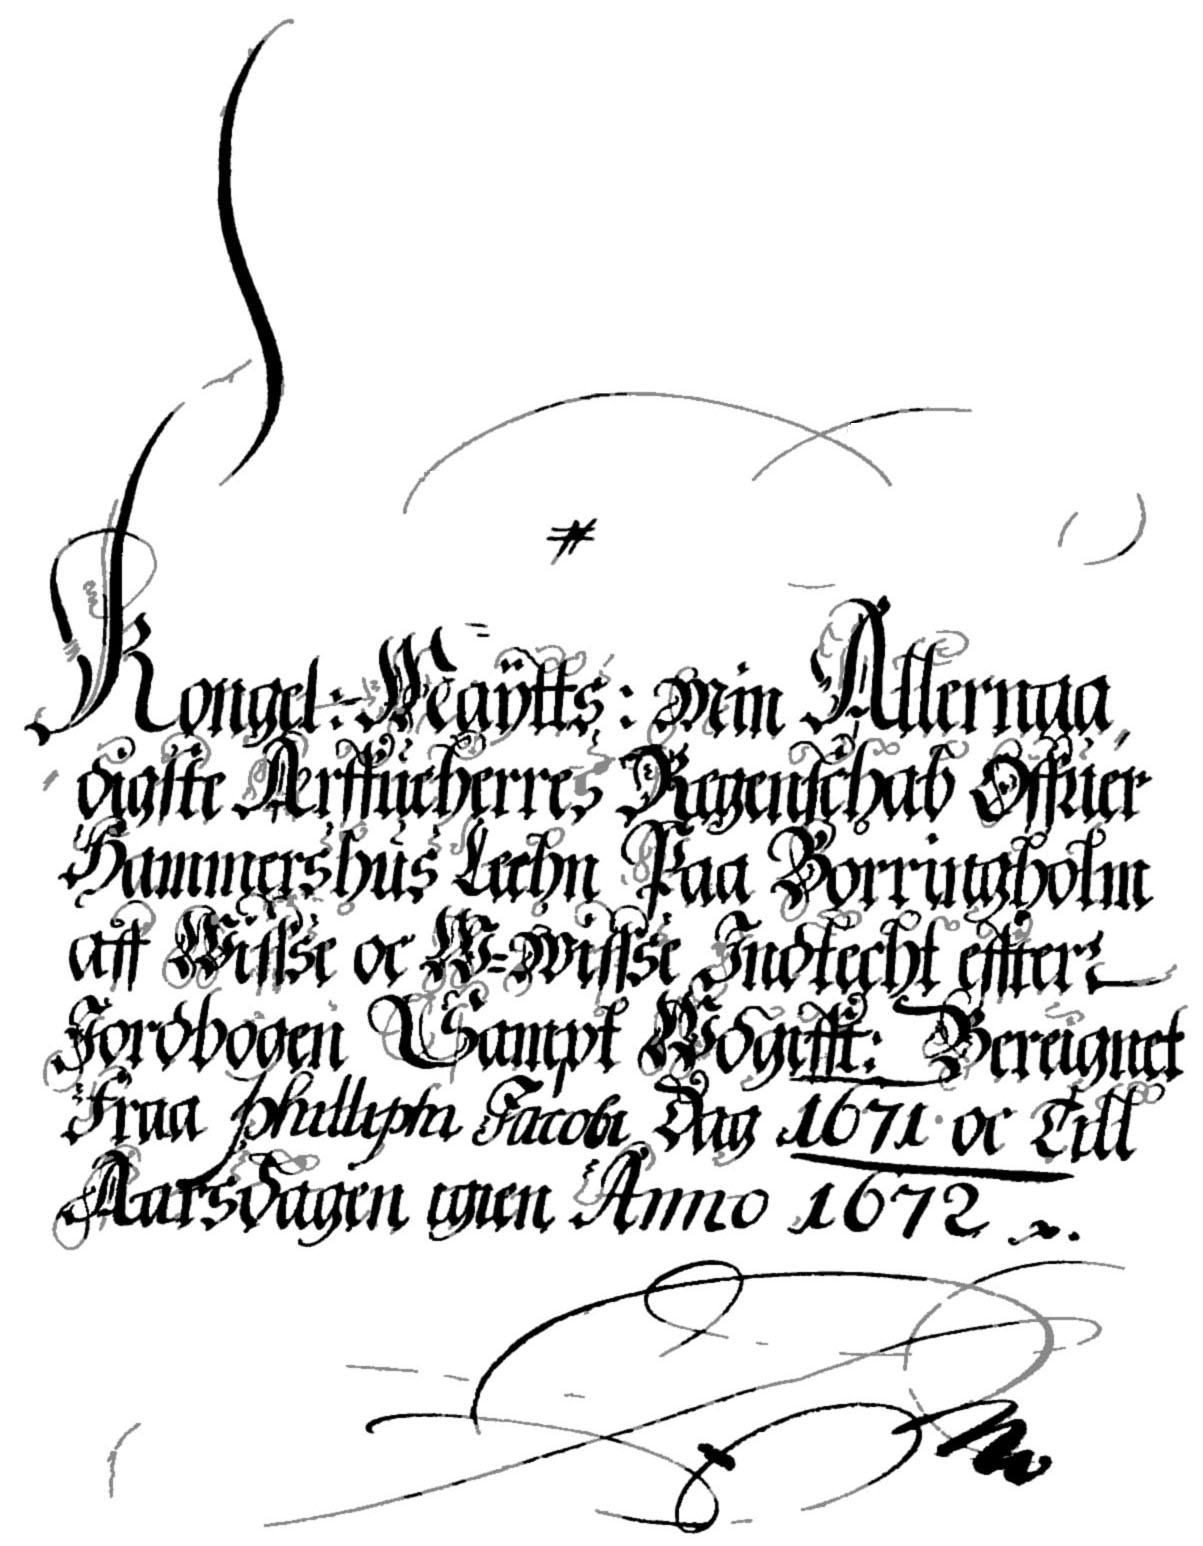 Kongel: Maytts: Min Allernaa,
digste Arffueherres Regenschab Offuer
Hammershus Leehn Paa Borringholm
aff Wissse oc W=Wissse Indtecht effter
Jordbogen Sampt Wdgifft: Bereignet
Fraa Phillippi Jacobi Dag 1671 oc Till
Aarsdagen igien Anno 1672